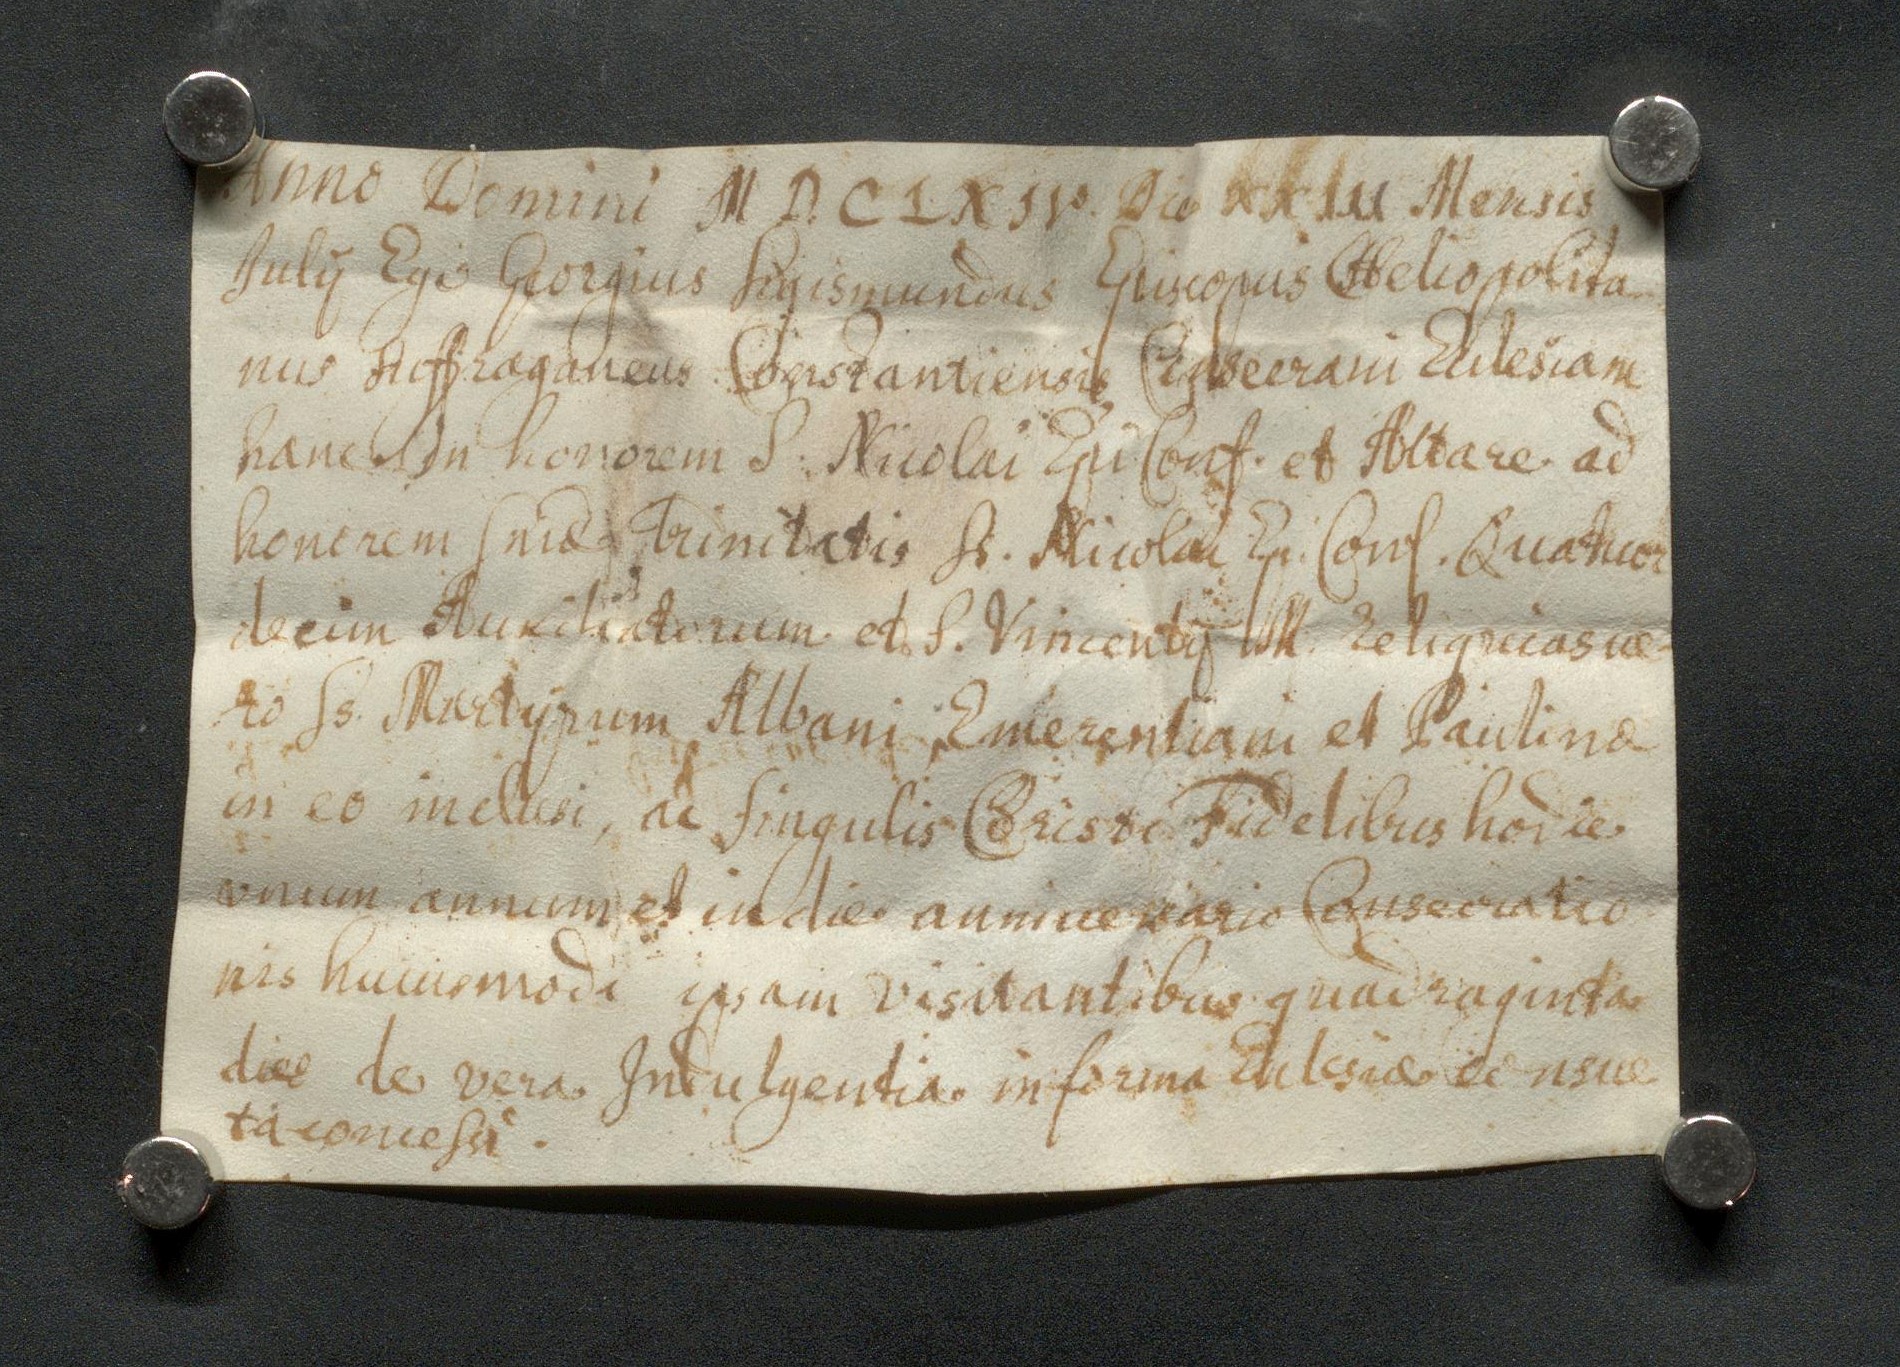 Anno Domini M D. C LXIV. Die XXIII Mensis
Julÿ Ego Georgius Sigismundus Episcopus Heliopolita
nus suffraganeus Constantiensis Consecravi Ecclesiam
hanc In honorem S. Nicolai Epi Conf. et Altare ad
honorem smæ Trinitatis Ss. Nicolai Epi Conf. Quatuor
decim Auxiliatorum et S. Vincentÿ M. reliquias ve
ro Ss. Martÿrum Albani Emerentiani et Paulinæ
in eo inclusi, ac singulis Christi Fidelibus hodie
vnum annum et in die anniversario Consecratio
nis huiusmodi ipsam visitantibus quadraginta
dies de vera Indulgentia in forma Ecclesiæ consue
ta concessi.